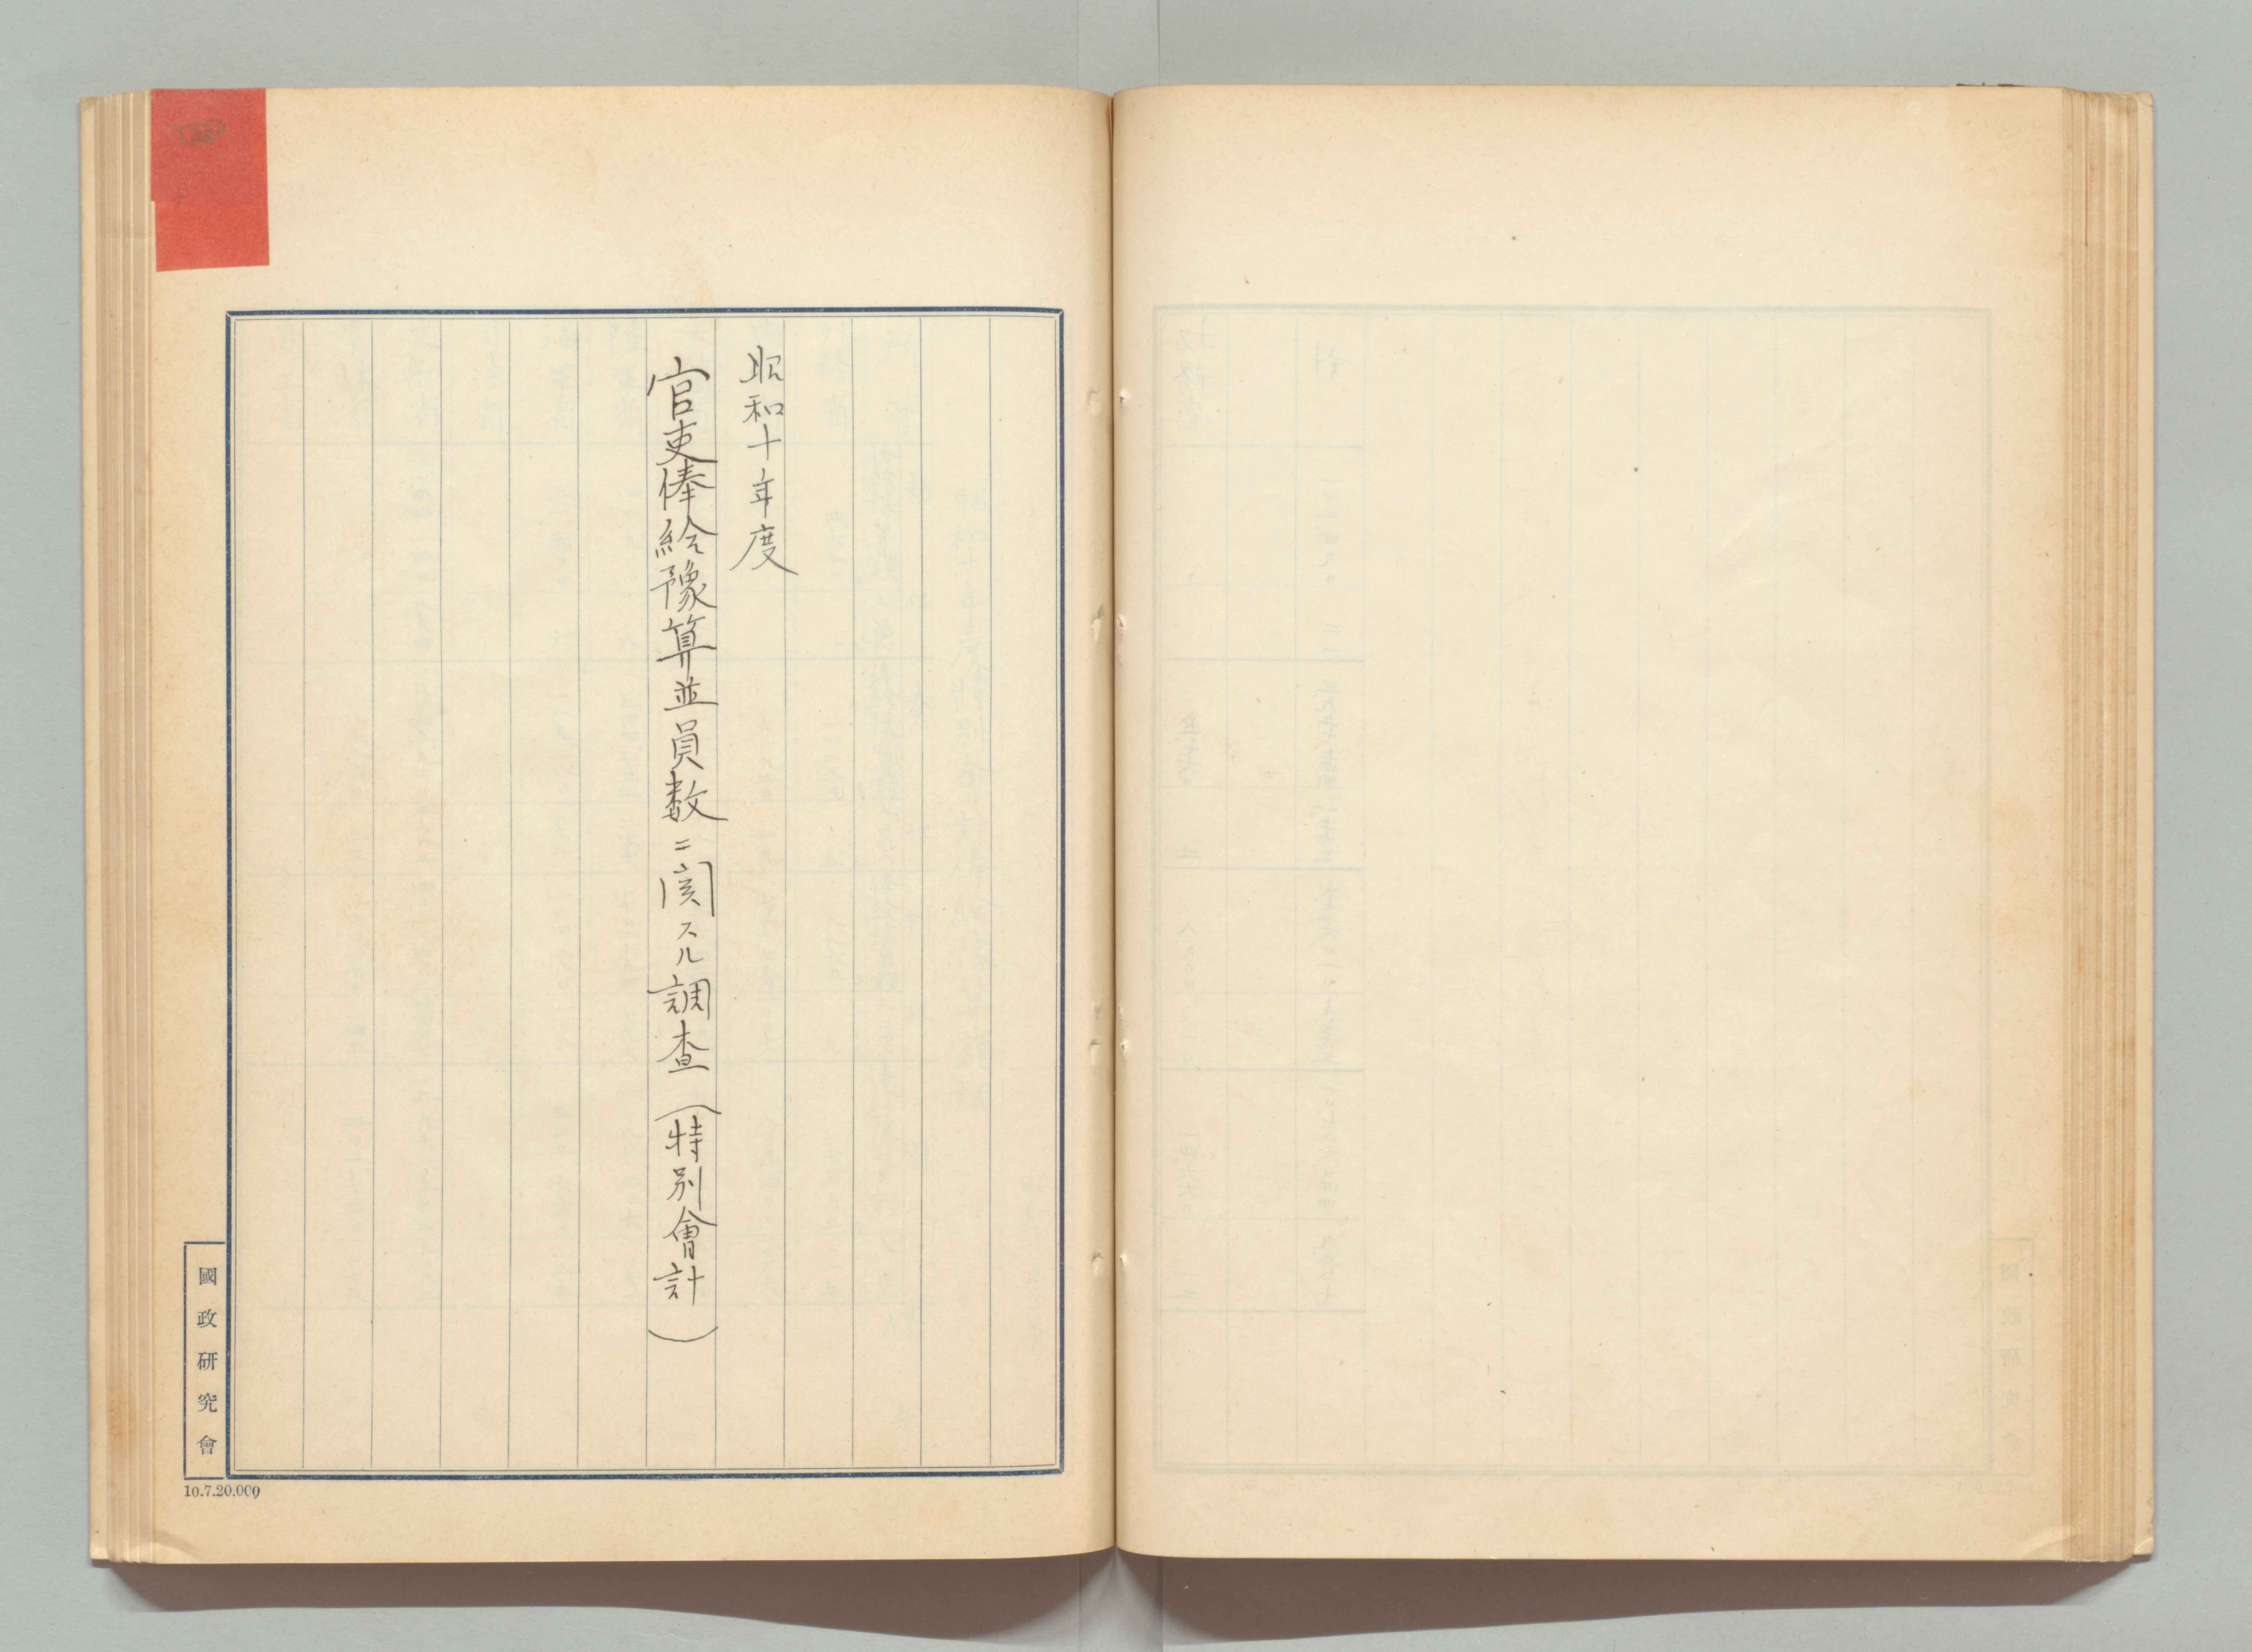 昭和十年度
官吏俸給豫算並員数ニ関スル調査（特別會計）
國政研究會
10.7.20.000